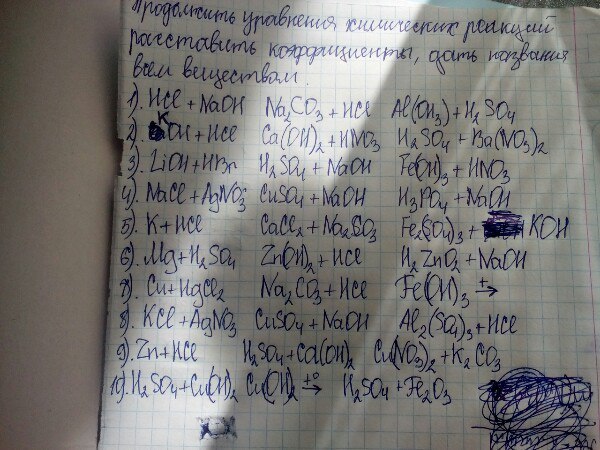 Продолжить уравнения химических реакций
расставить коэффициенты, дать названия
всем веществам.
1). HCl + NaOH Na2CO3 + HCl Al(OH3) + H2SO4
2). KOH + HCl Ca(OH)2 + HNO3 H2SO4 + Ba(NO3)2
3). LiOH + HBr H2SO4 + NaOH Fe(OH)3 + HNO3
4). NaCl + AgNO3 CuSO4 + NaOH H3PO4 + NaOH
5). K + HCl CaCl2 + Na2CO3 Fe2(SO4)3 + KOH
6). Mg + H2SO4 Zn(OH)2 + HCl H2ZnO2 + NaOH
7). Cu + HgCl2 Na2CO3 + HCl Fe(OH)3 t→
8). KCl + AgNO3 CuSO4 + NaOH Al2(SO4)3 + HCl
9). Zn + HCl H2SO4 + Ca(OH)2 Cu(NO3)2 + K2CO3
10). H2SO4 + Cu(OH)2 Cu(OH)2 t°→ H2SO4 + Fe2O3